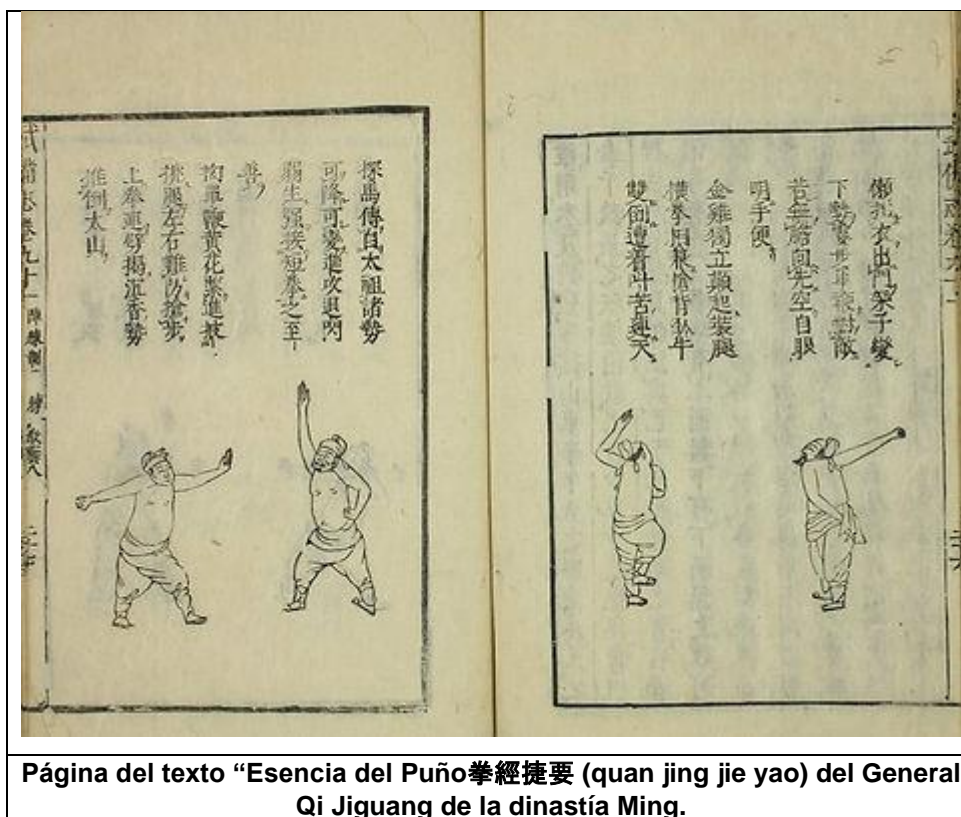 武備志卷九十一
懶扎衣出門架子變
下勢霎步單鞭對敵
若無膽向先空自眼
明手便
金雞獨立顛起裝腿
橫拳相兼搶背臥牛
雙倒遭着叫苦連天
探馬傳自太祖諸勢
可降可變進攻退閃
弱生强接短拳之至
善
拗單鞭黃花緊進披
挑腿左右難防搶步
上拳連劈揭沉香勢
推倒太山
武備志卷九十一 陣練制
Página del texto “Esencia del Puño拳經捷要 (quan jing jie yao) del General
Qi Jiguang de la dinastía Ming.